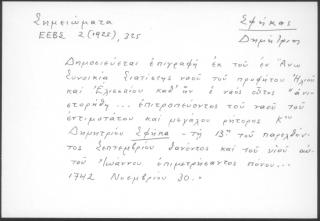 Σημειώματα
Σφήκας
ΕΕΒΣ 2 (1925), 325
Δημήτριος
Δημοσιεύεται ἐπιγραφή ἐκ τοῦ ἐν Ἄνω
Συνοικία Σιατίστης ναοῦ τοῦ προφήτου Ἠλιού
καί Ἐλισσαίου καθ' ἥν ὁ ναός οὗτος "ἀνι-
στορήθη ... ἐπιτροπεύοντος τοῦ ναοῦ τοῦ
ἐντιμοτάτου καί μεγάλου ρήτορος Κου
Δημητρίου Σφήκα - τῇ 13ῃ τοῦ παρελθόν-
τος Σεπτεμβρίου θανόντος καί τοῦ υἱοῦ αὐ-
τοῦ Ἰωάννου ἐπιμετρήσαντος πόνου...
1742 Νοεμβρίου 30.